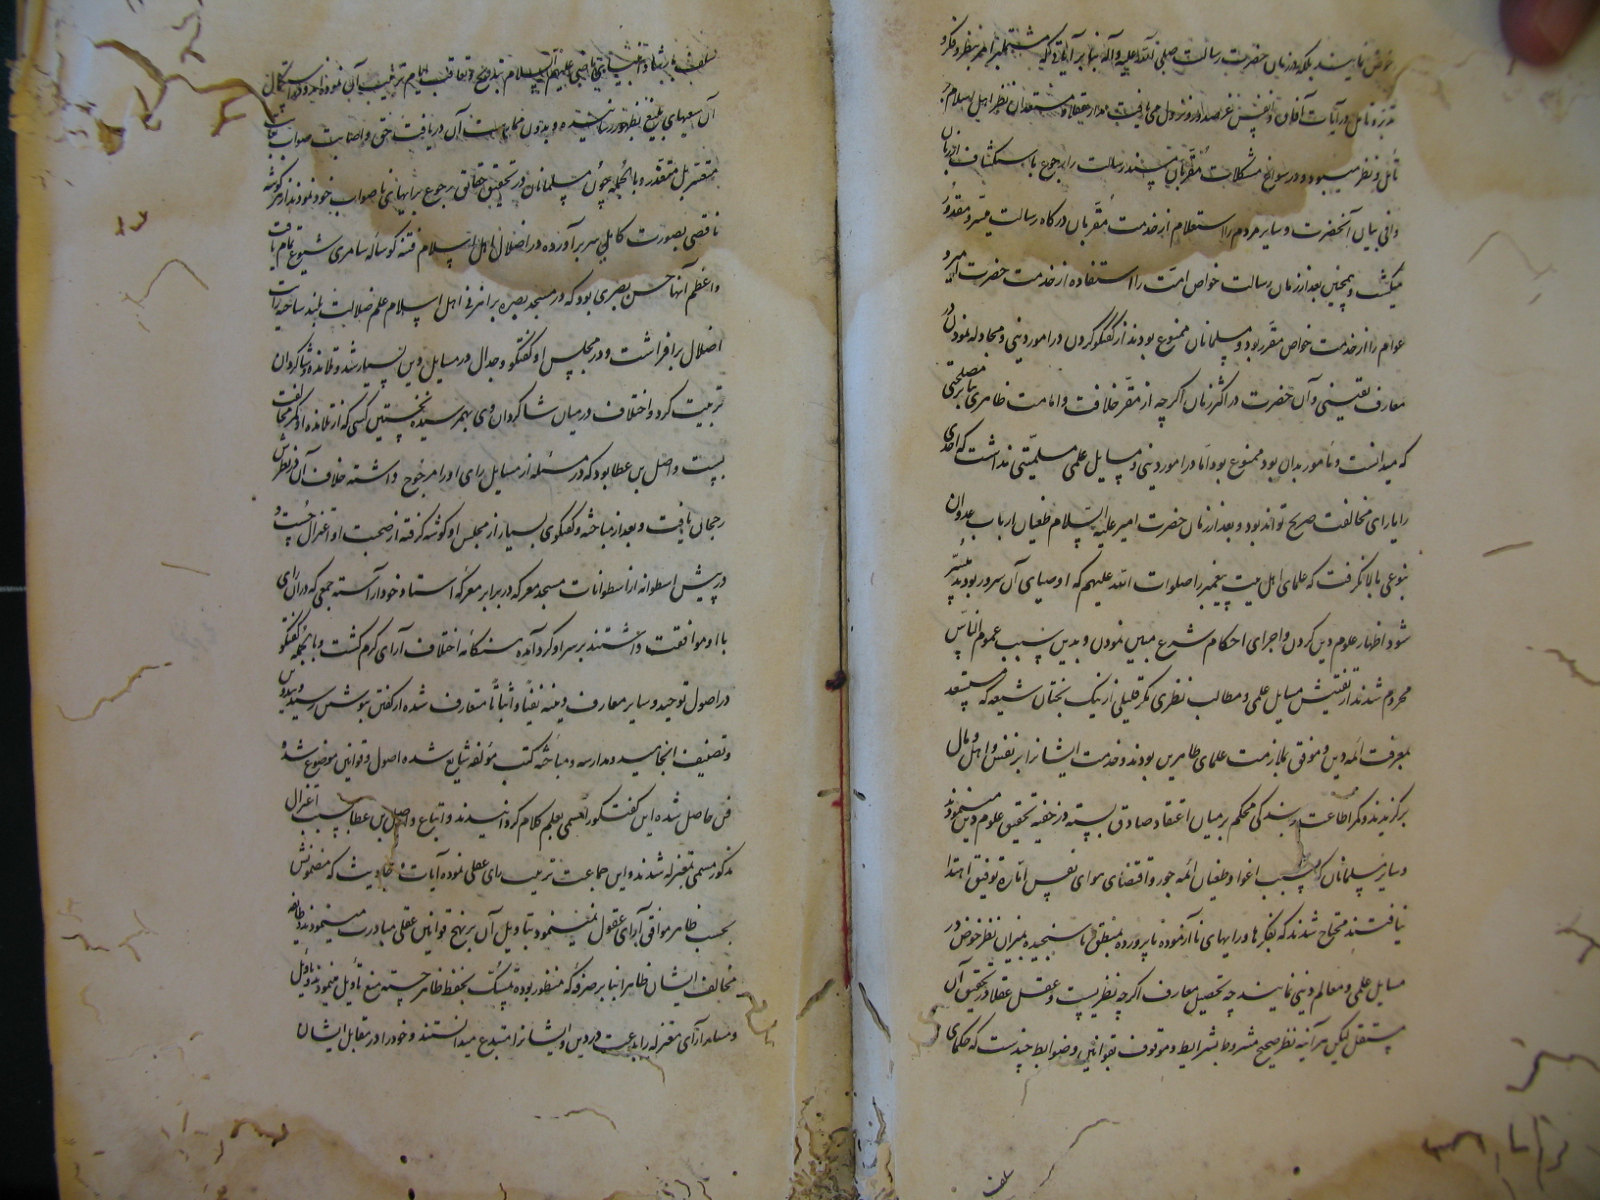 خوض نمایند بلکه در زمان حضرت رسالت صلی الله علیه و آله بنا بر آیات کریمه مشتمله بر امر بنظر و فکر و
تدبر و تامل در آیات آفاق و انفس عز صدور و نزول می یافت مدار عقلا و مستعدان نظر اهل اسلام بر
تامل و نظر میبود و در سوانح مشکلات مقربان مسند رسالت را رجوع با ستکشاف از زبان
وافی بیان آنحضرت و سایر مردم را استعلام از خدمت مقربان درگاه رسالت میسر و مقدور
میگشت و همچنین بعد از زمان رسالت خواص امت را استفاده از خدمت حضرت امیر و
عوام را از خدمت خواص مقرر بود و مسلمانان ممنوع بودند از گفتگو کردن در امور دینی و مجادله نمودن در
معارف یقینی و آن حضرت در اکثر زمان اگر چه از مقر خلافت و امامت ظاهری بنا بر مصلحتی
که میدانست و مأمور بدان بود ممنوع بود اما در امور دینی و مسایل علمی مسلمیتی نداشت که احدی
را یارای مخالفت صریح تواند بود و بعد از زمان حضرت امیر علیه السلام طغیان ارباب عدوان
بنوعی بالا گرفت که علمای اهل بیت پیغمبر را صلوات الله علیهم که اوصیای آن سرور بودند میسر
نشود اظهار علوم دین کردن و اجرای احکام شرع مبین نمودن و بدین سبب عموم الناس
محروم شدند از تفتیش مسایل علمی و مطالب نظری مگر قلیلی از نیک بختان شیعه که مستعد
بمعرفت ائمه دین و موفق بملازمت علمای طاهرین بودند و خدمت ایشانرا بر نفس و اهل و مال
برگزیدند و کمر اطاعت و بندگی محکم بر میان اعتقاد صادق بسته در خفیه تحقیق علوم دین مینمودند
و سایر مسلمانان که بسبب اغوا و طغیان ائمه جور و اقتضای هوای نفس اماره توفیق اهتدا
نیافتند محتاج شدند که بفکرها و رایهای ناآزموده ناپرورده بمنطق ناسنجیده بمیزان نظر خوض در
مسایل علمی و معالم دینی نمایند چه تحصیل معارف اگر چه نظریست و عقل عقلا در تحقیق آن
مستقل لیکن هر آینه نظر صحیح مشروط بشرایط و موقوف بقوانین و ضوابط چندست که حکمای
سلف بارشاد انبیای ماضی علیهم السلام بتدریج و تعاقب ایام ترتیب آن نموده اند و در استکمال
آن سعیهای بلیغ بظهور رسانیده و بدون ممارست آن دریافت حق و اصابت صواب بغایت
متعسر بل متعذر و بالجمله چون مسلمانان در تحقیق حقایق رجوع برایهای ناصواب خود نمودند از هر گوشه
ناقصی بصورت کاملی سر بر آورده در اضلال اهل اسلام فتنه گوساله سامری شیوع تمام یافت
و اعظم آنها حسن بصری بود که در مسجد بصره برانحراف اهل اسلام علم ضلالت بلند ساخته رایت
اضلال بر افراشت و در مجلس او گفتگو و جدال در مسایل دین بسیار شد و تلامذه و شاگردان
تربیت کرد و اختلاف در میان شاگردان وی بهم رسیده نخستین کسی که از تلامذه او کمر مخالفت
بست واصل بن عطا بود که در مسئله از مسایل رای او را مرجوح داشته خلاف آن در نظرش
رجحان یافت و بعد از مباحثه و گفتگوی بسیار از مجلس او گوشه گرفته از صحبت او اعتزال جست و
در پیش اسطوانه از اسطوانات مسجد معرکه در برابر معرکه استاد خود آراسته جمعی که در آن رای
با او موافقت داشتند بر سر او گرد آمده هنگامه اختلاف آرای گرم گشت و بالجمله گفتگو
در اصول توحید و سایر معارف دینیه نفیا و اثباتا متعارف شده از گفتن بنوشتن رسید و تدوین
و تصنیف انجامید و مدارسه و مباحثه کتب مؤلفه شایع شده اصول و قوانین موضوع شد و
فن حاصل شده این گفت و گو را مسمی بعلم کلام گردانیدند و اتباع واصل بن عطا بسبب اعتزال
مذکور مسمی بمعتزله شدند و این جماعت ترتیب رای عقلی نموده آیات و احادیث که مضمونش
بحسب ظاهر موافق آرای عقول نمینمود بتاویل آن بر نهج قوانین عقلی مبادرت مینمودند و طایفه
مخالف ایشان ظاهرا بنا بر صرفه که منظور بوده تمسک بحفظ ظاهر جسته منع تأویل مینمودند و تاویل
و مسایل و آرای معتزله را بدعت در دین و ایشانرا مبتدع میدانستند و خود را در مقابل ایشان
سلف